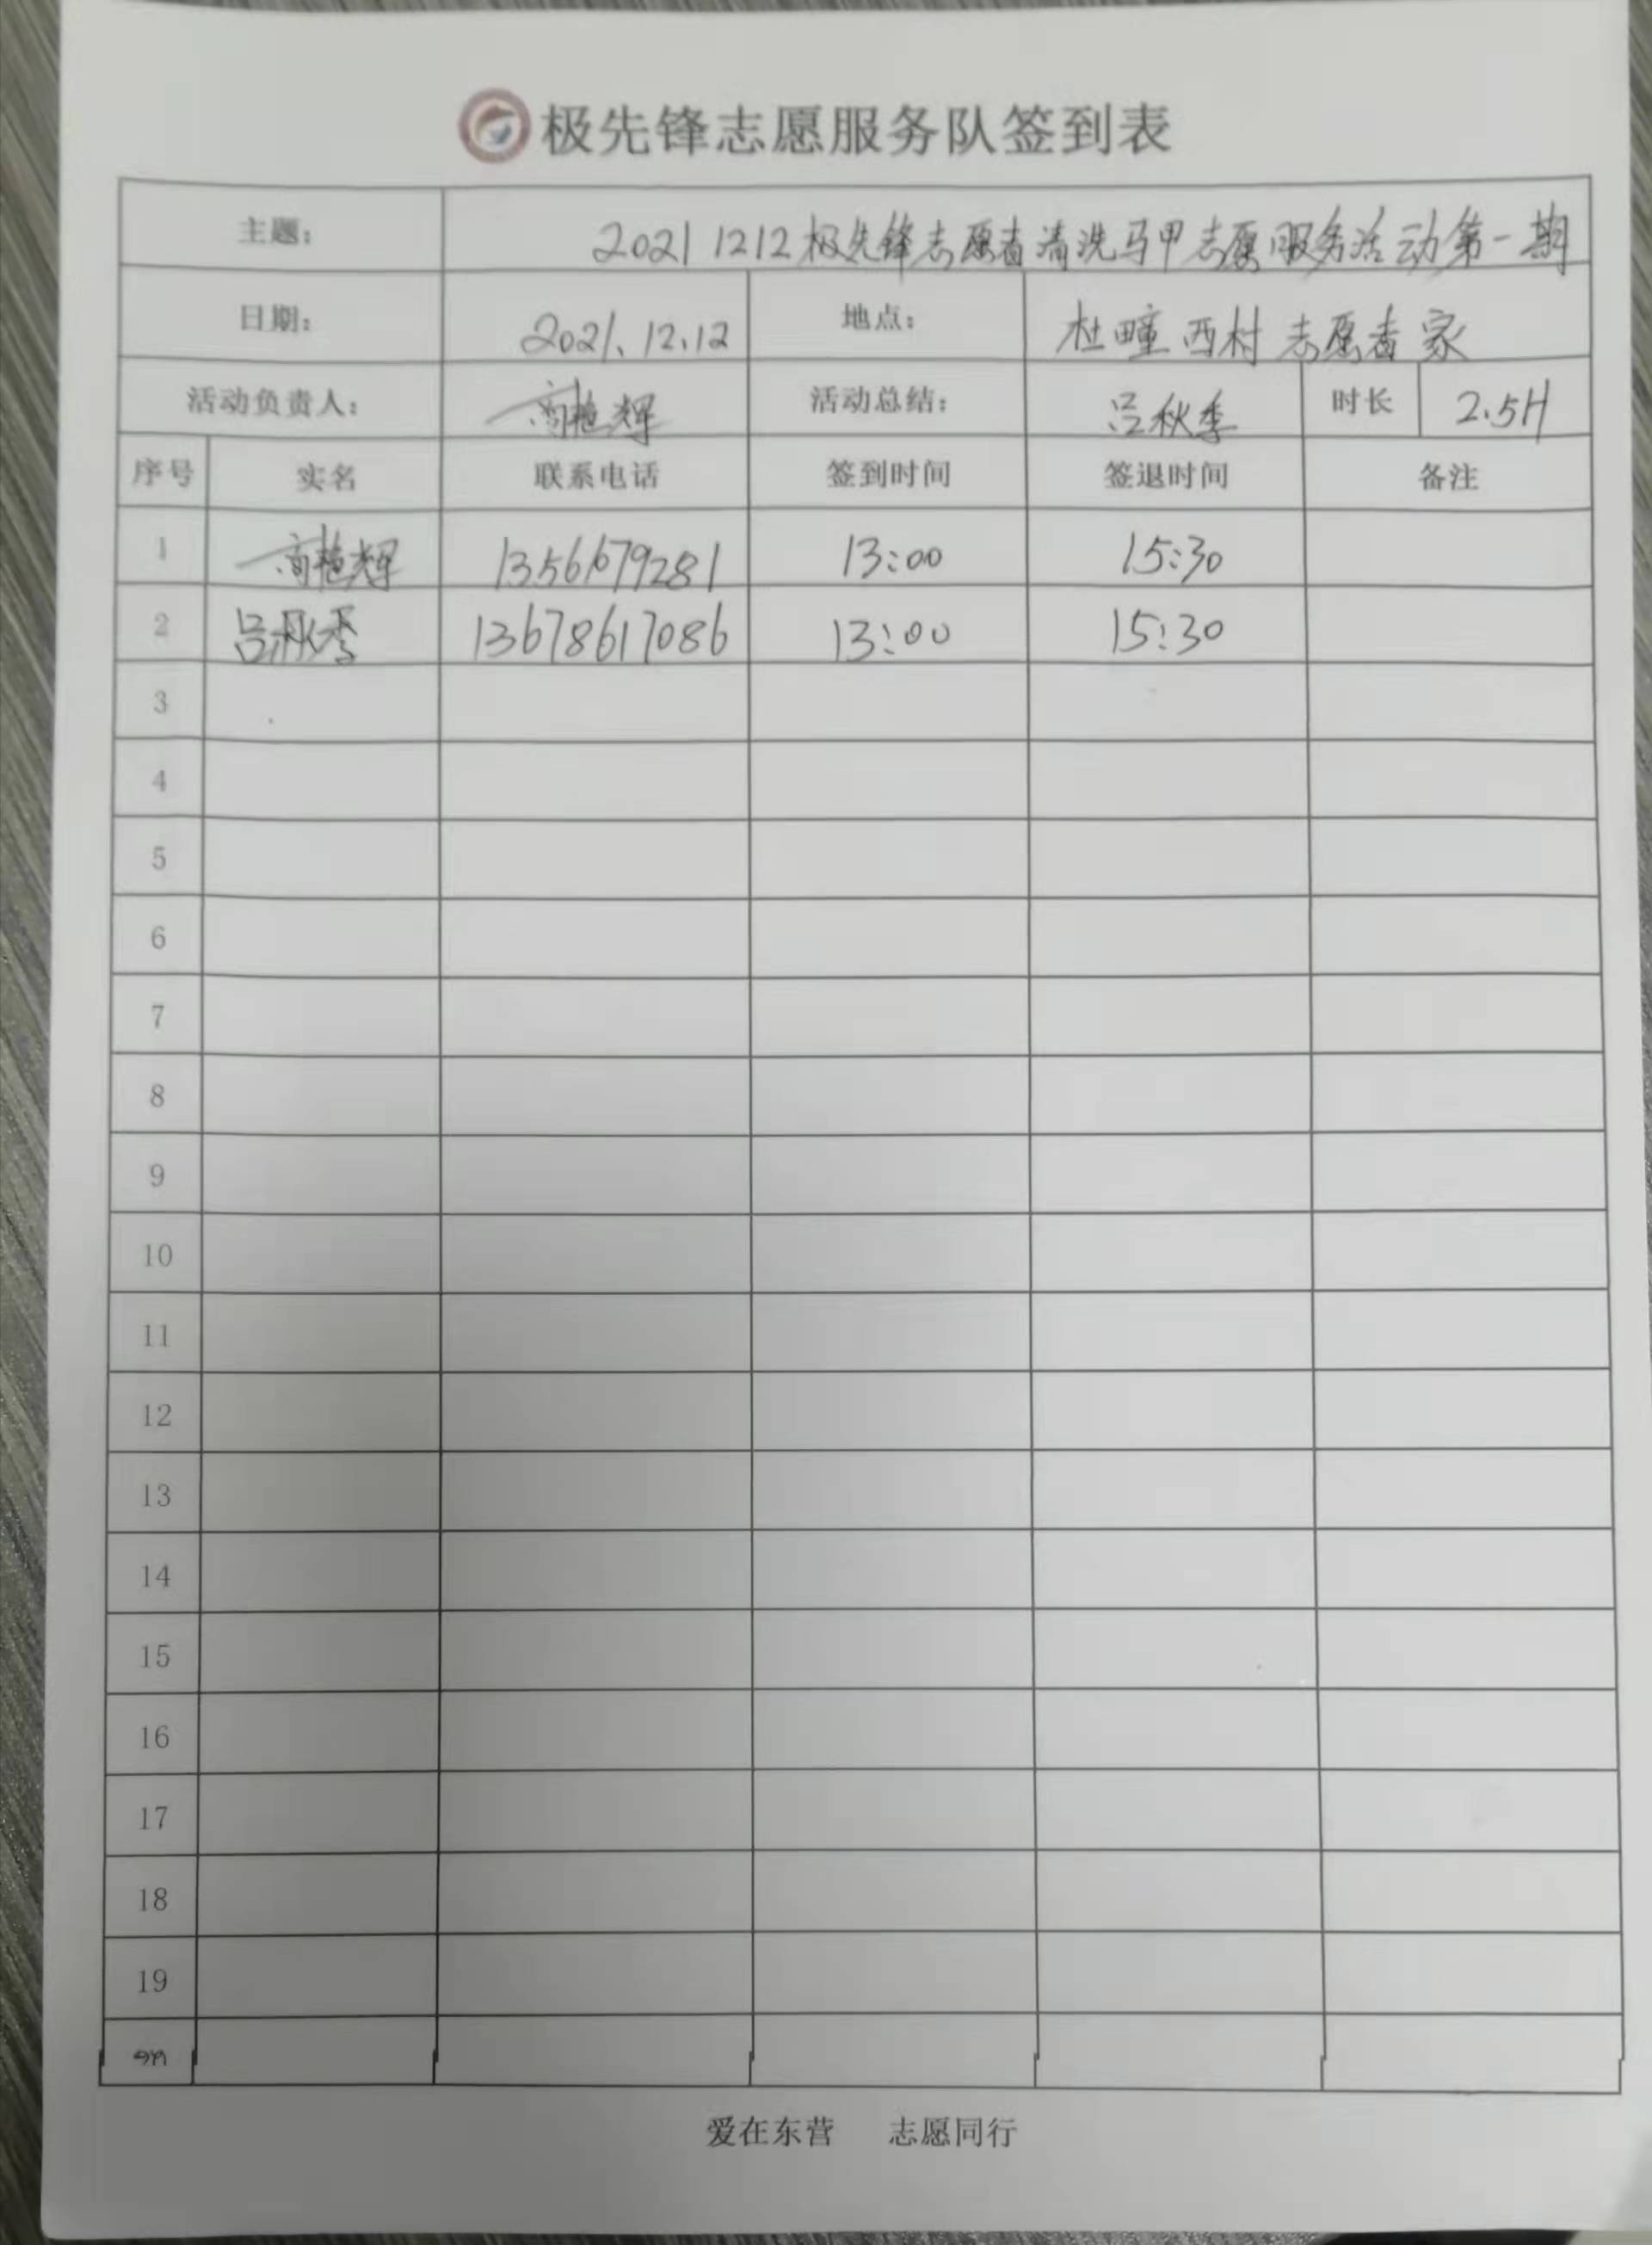 极先锋志愿服务队签到表
主题: 20211212极先锋志愿者清洗马甲志愿服务活动第一期
日期: 2021.12.12 地点: 杜疃西村志愿者家
活动负责人: 高艳辉 活动总结: 吕秋季 时长 2.5H
序号 实名 联系电话 签到时间 签退时间 备注
1 高艳辉 1356679281 13:00 15:30
2 吕秋季 13678617086 13:00 15:30
3
4
5
6
7
8
9
10
11
12
13
14
15
16
17
18
19
爱在东营 志愿同行